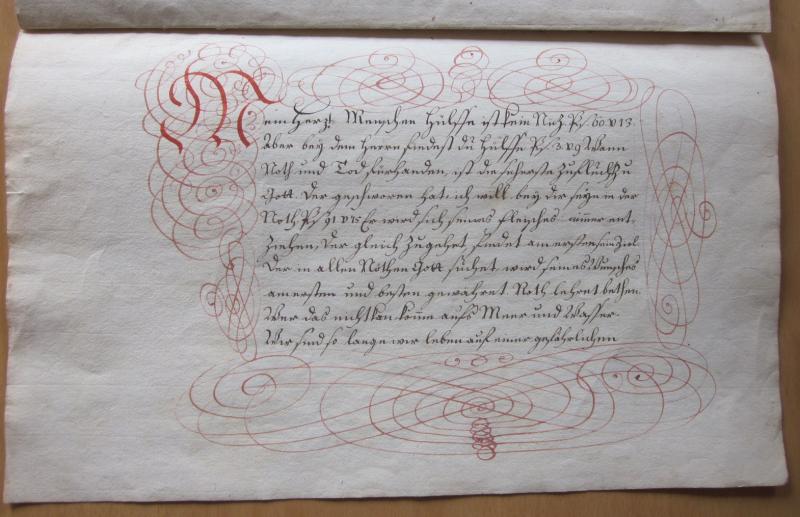 Mein Herz, Menschen Hülffe ist kein Nuz. Ps. 60 v 13.
Aber bey dem Herrn findest du Hülffe Ps. 3. v 9 Wann
Noth und Tod fürhanden, ist die sicherste Zuflucht zu
Gott. Der geschworen hat: ich will bey dir seyn in der
Noth Ps. 91 v 15 Er wird sich seines Fleisches nimmer ent,
ziehen, Der gleich Zugehet, findet am ersten sein Ziel.
Der in allen Nöthen Gott suchet wird seines Wunsches
am ersten und besten gewähret. Noth lehret bethen.
Wer das nicht kan komme aufs Meer und Wasser.
Wir sind so lange wir leben auf einer gefährlichen